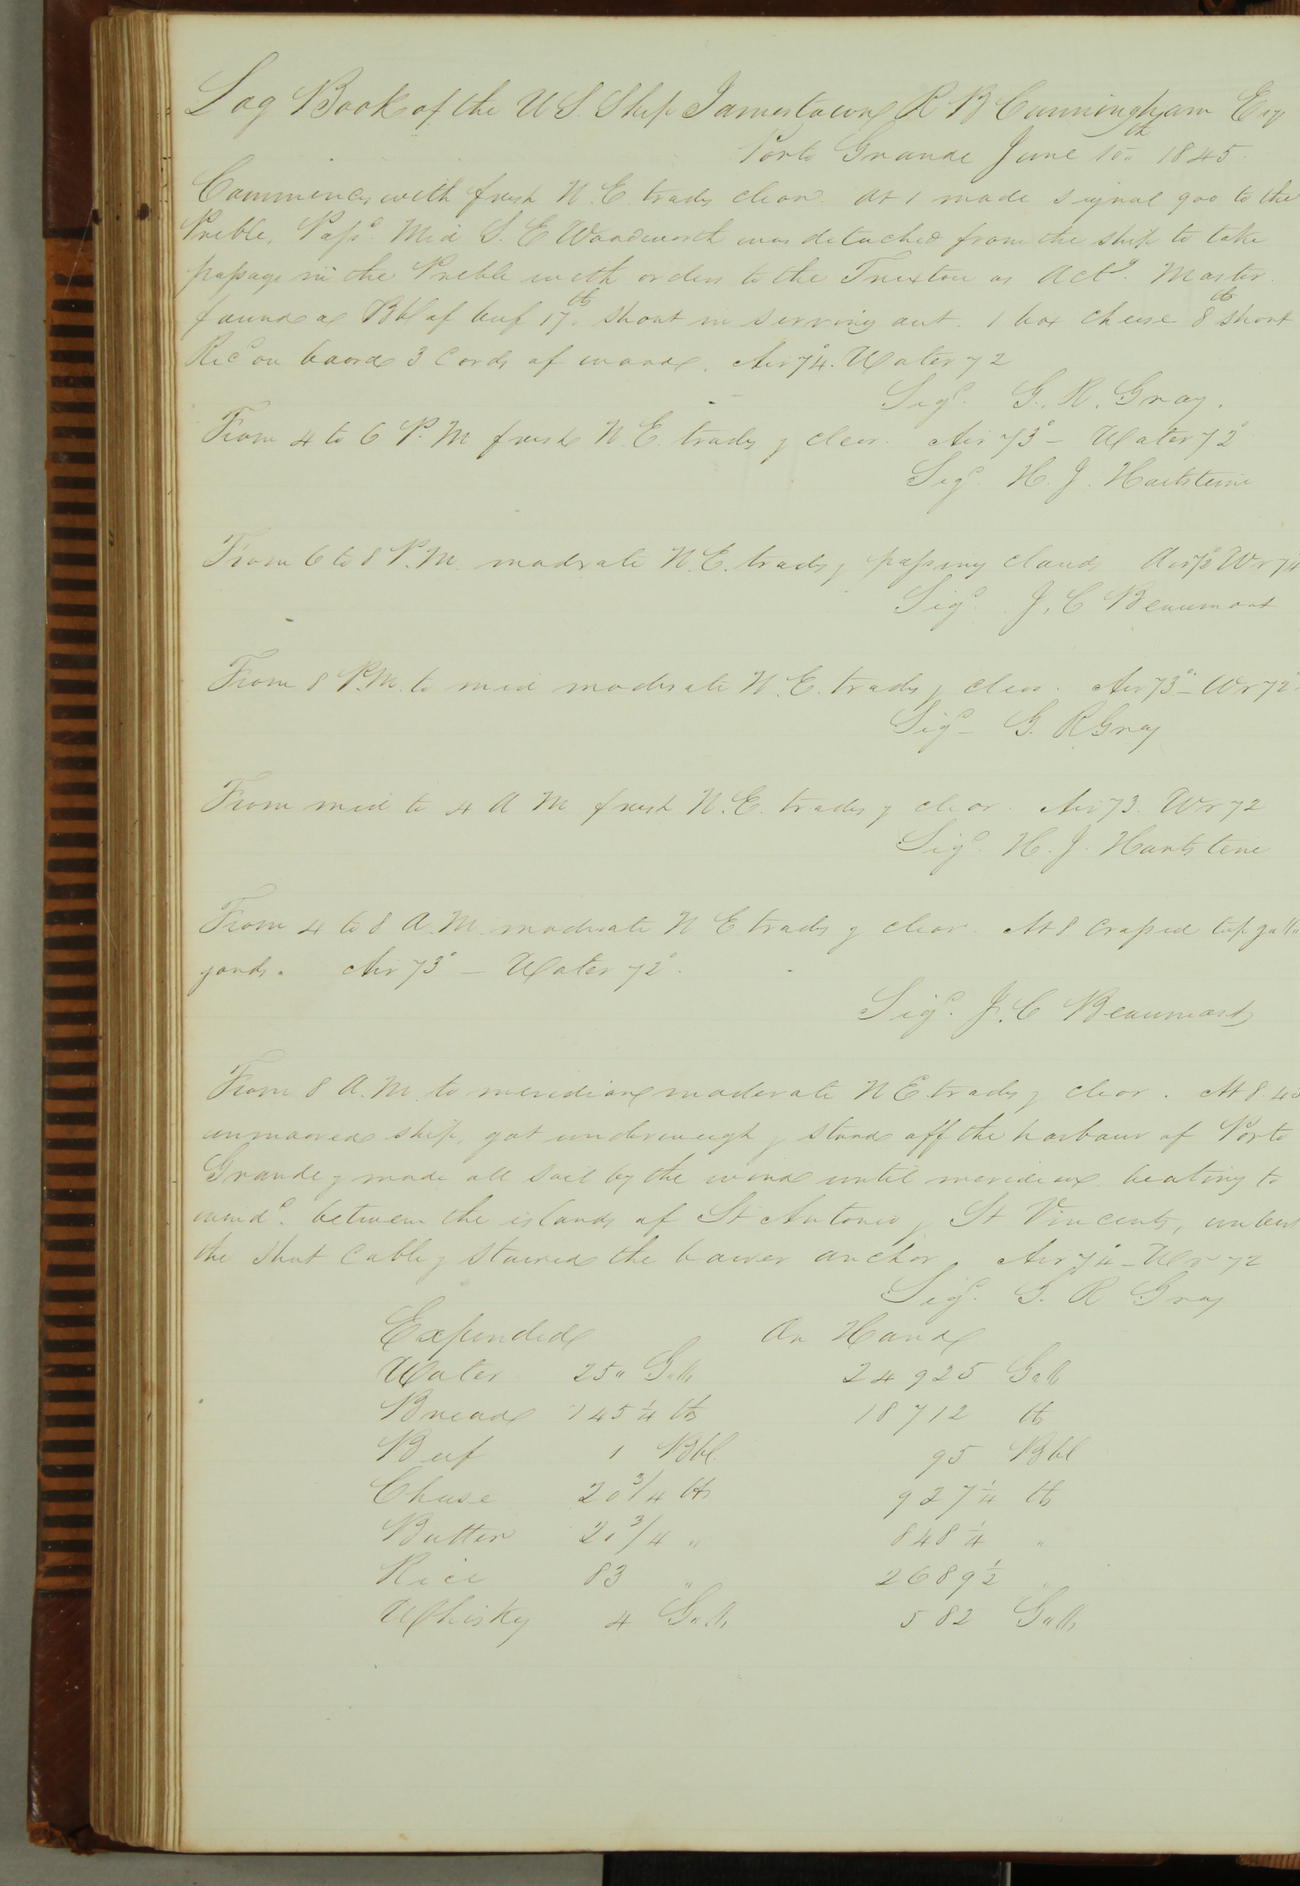 Log Book of the U S. Ship Jamestown R B Cunningham Esq
Porto Grande June 10th 1845.
Commences with fresh N. E. trades clear. At 1 made signal 900 to the
Preble, Passd Mid S. E Woodworth was detached from the ship to take
passage in the Preble with orders to the Truxton as Actg. Master.
found a Bbl of beef 17 lb short in serving out. 1 box cheese 8 lb short
Recd on board 3 Cords of wood. Air 74° Water 72
Sigd. G. R. Gray.
From 4 to 6 P. M fresh N. E. trades & clear. Air 73° – Water 72°
Sigd. H. J. Hartstene
From 6 to 8 P. M. modrate N. E. trades & passing clouds Wr
Sigd. J. C Beaumont
From 8 P.M. to mid moderate N. E. trades & clear. Air 73° – Wr 72°
Sigd – G. R Gray
From mid to 4 A M fresh N. E. trades & clear. Air 73. Wr 72
Sigd. H. J. Hartstene
From 4 to 8 A. M. moderate N E trades & clear. At 8 crossed top gallt
yards. Air 73° – Water 72°.
Sigd. J. C Beaumont
From 8 A. M. to meridian moderate N E trades & clear. At 8. 45
unmoored ship, got underweigh & stood off the harbour of Porto
Grande & made all sail by the wind until meridian beating to
windd. between the islands of St Antonio & St Vincents, unbent
the Shut Cable & stowed the bower anchor Air 74° – Wr 72
Sigd. G. R Gray
Expended On Hand
Water 250 Galls 24925 Galls
Bread 145 1/4 lbs 18712 lb
Beef 1 Bbl. 95 Bbl
Cheese 20 3/4 lbs 927 1/4 lb
Butter 20 3/4 " 848 1/4 "
Rice 83 " 2689 1/2 "
Whisky 4 Galls 582 Galls